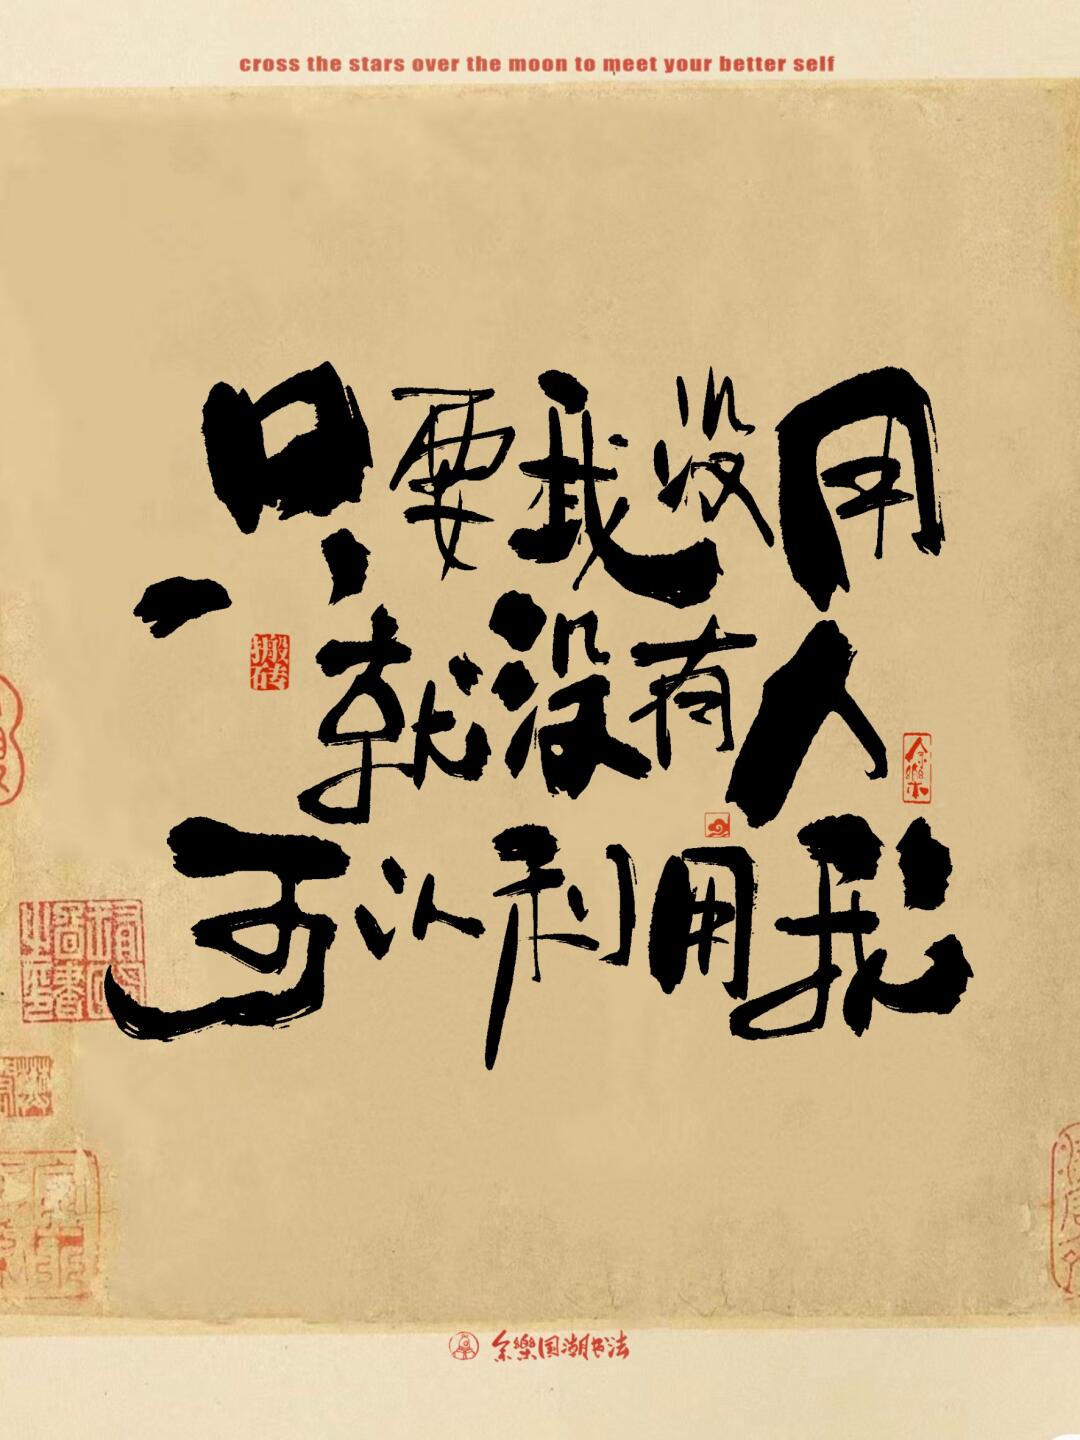 cross the stars over the moon to meet your better self
只要我没用
就没有人
可以利用我
搬砖
余樂
余樂国潮书法